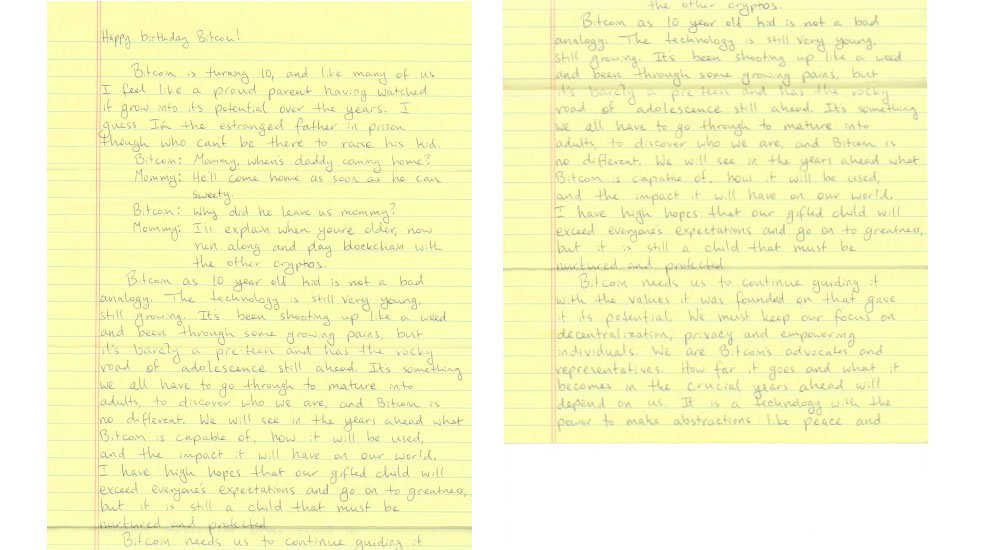 Happy birthday Bitcoin!
Bitcoin is turning 10, and like many of us
I feel like a proud parent having watched
it grow into its potential over the years. I
guess I'm the estranged father in prison
though who can't be there to raise his kid.
Bitcoin: Mommy, when's daddy coming home?
Mommy: He'll come home as soon as he can
sweety.
Bitcoin: Why did he leave us mommy?
Mommy: I'll explain when you're older, now
run along and play blockchain with
the other cryptos.
Bitcoin as 10 year old kid is not a bad
analogy. The technology is still very young,
still growing. It's been shooting up like a weed
and been through some growing pains, but
it's barely a pre teen and has the rocky
road of adolescence still ahead. It's something
we all have to go through to mature into
adults, to discover who we are, and Bitcoin is
no different. We will see in the years ahead what
Bitcoin is capable of, how it will be used,
and the impact it will have on our world.
I have high hopes that our gifted child will
exceed everyone's expectations and go on to greatness,
but it is still a child that must be
nurtured and protected.
Bitcoin needs us to continue guiding it
the other cryptos.
Bitcoin as 10 year old kid is not a bad
analogy. The technology is still very young,
still growing. It's been shooting up like a weed
and been through some growing pains, but
it's barely a pre teen and has the rocky
road of adolescence still ahead. It's something
we all have to go through to mature into
adults, to discover who we are, and Bitcoin is
no different. We will see in the years ahead what
Bitcoin is capable of, how it will be used,
and the impact it will have on our world.
I have high hopes that our gifted child will
exceed everyone's expectations and go on to greatness,
but it is still a child that must be
nurtured and protected
Bitcoin needs us to continue guiding it
with the values it was founded on that gave
it its potential. We must keep our focus on
decentralization, privacy and empowering
individuals. We are Bitcoin's advocates and
representatives. How far it goes and what it
becomes in the crucial years ahead will
depend on us. It is a technology with the
power to make abstractions like peace and